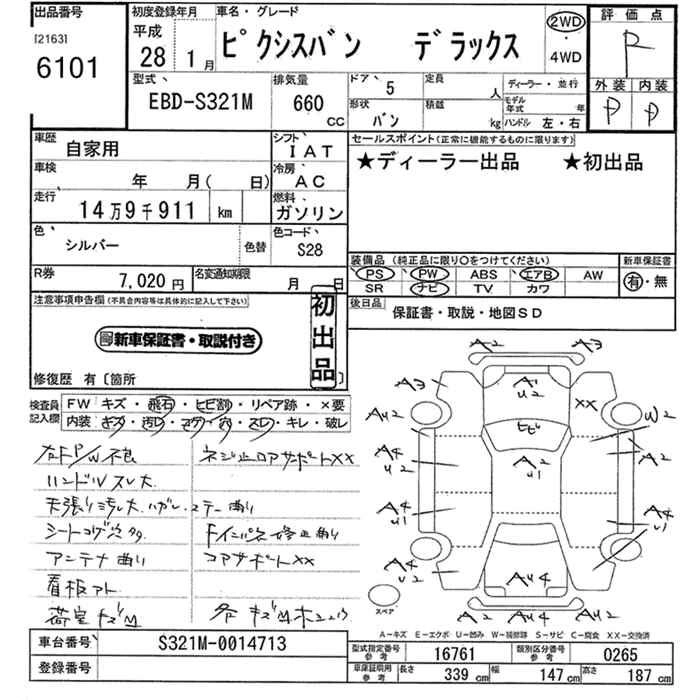 出品番号
[2163]
6101
初度登録年月
平成
28 1月
車名・グレード
ピクシスバン デラックス
2WD
・
4WD
評価点
R
外装 内装
P P
型式
EBD-S321M
排気量
660 CC
ドア 5
形状 バン
定員 人
積載 kg
ディーラー・並行
モデル年式 年
ハンドル 左・右
車歴 自家用
車検 年 月( 日)
走行
14万9千911 km
色 シルバー 色替
シフト IAT
冷房 AC
燃料 ガソリン
色コード S28
セールスポイント(正常に機能するものに限ります)
★ディーラー出品 ★初出品
装備品 (純正品に限り○をつけてください)
PS PW ABS エアB AW
SR ナビ TV カワ
新車保証書
有・無
R券 7,020円
名変通知期限 月 日
後日品 保証書・取説・地図SD
注意事項申告欄(不具合内容等は具体的に記入して下さい)
新車保証書・取説付き
初出品
修復歴 有〔箇所
検査員記入欄
FW キズ・飛石・ヒビ割・リペア跡・×要
内装 キズ・汚レ・コゲ・穴・スレ・キレ・破レ
ハンドルスレ大
シートコゲ穴
アンテナ曲り
看板アト
荷室キズM
ネジ止コアサポートXX
コアサポートXX
A2
A3 A2 A3
XX
A2 W2
ヒビ
A2
U1
A4
U2
A2
A4
U1
A4
U1
A4
U2
AU4
A2 AU4 AU2
スペア
A-キズ E-エクボ U-凹み W-補修跡 S-サビ C-腐食 XX-交換済
車台番号 S321M-0014713
登録番号
型式指定番号 参考 16761
類別区分番号 参考 0265
車庫証明用 参考 長さ 339 cm 幅 147 cm 高さ 187 cm